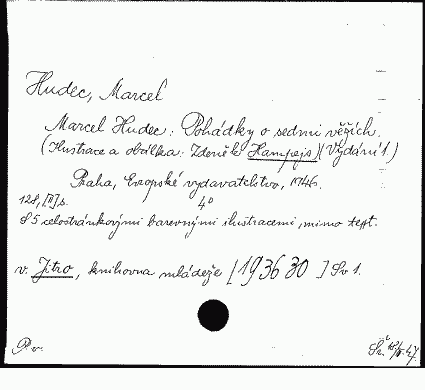 Hudec, Marcel
Marcel Hudec: Pohádky o sedmi věžích.
(Ilustrace a obálka: Zdeněk Hampejs)(Vydání 1.)
Praha, Evropské vydavatelstvo, 1946.
128, [II] s. 4°
S 5 celostránkovými barevnými ilustracemi, mimo text.
v. Jitro, knihovna mládeže [193630] Sv 1.
P. v.